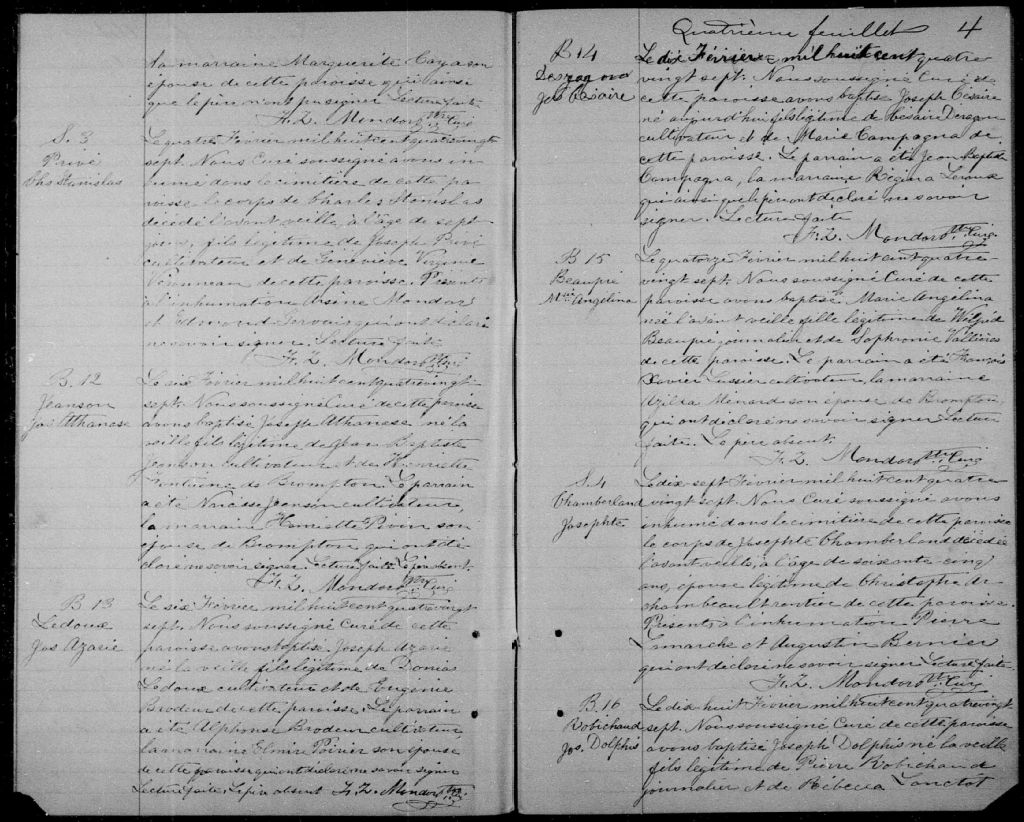 la marraine Marguerite
épouse de cette paroisse qui ainsi
que le père n'ont pu signer Lecture faite
F. Z. Mondor Ptre Curé
S. 3
Privé
Chs Stanislas
Le quatre Février mil huit cent quatre vingt
sept. Nous Curé soussigné avons in-
humé dans le cimitière de cette pa-
roisse le corps de Charles Stanislas
décédé l'avant veille, à l'âge de sept
jours, fils légitime de Joseph Privé
cultivateur et de Geneviève Virginie
de cette paroisse. Présents
à l'inhumation Arsène Mondor
et Edmond Gervais qui ont déclaré
ne savoir signer. Lecture faite
F. Z. Mondor Ptre Curé
B. 12
Jeanson
Jos Athanase
Le six Février mil huit cent quatre vingt
sept. Nous soussigné Curé de cette paroisse
avons baptisé Joseph Athanase né la
veille fils légitime de Jean Baptiste
Jeanson cultivateur et de Henriette
Fontaine de Brompton. Le parrain
a été Narcisse Jeanson cultivateur,
la marraine Henriette son
épouse de Brompton qui ont dé-
claré ne savoir signer. Lecture faite. Le père absent.
F. Z. Mondor Ptre Curé
B 13
Ledoux
Jos Azarie
Le six Février mil huit cent quatre vingt
sept. Nous soussigné Curé de cette
paroisse avons baptisé Joseph Azarie
né la veille fils légitime de
Ledoux cultivateur et de Eugénie
Brodeur de cette paroisse. Le parrain
a été Alphonse Brodeur cultivateur
la marraine Elmire Poirier son épouse
de cette paroisse qui ont déclaré ne savoir signer
Lecture faite. Le père absent F. Z. Mondor Ptre Curé
Quatrième feuillet 4
B 14
Jos Césaire
Le dix Février mil huit cent quatre
vingt sept. Nous soussigné Curé de
cette paroisse avons baptisé Joseph Césaire
né aujourd'hui fils légitime de Césaire
cultivateur et de Marie Campagna de
cette paroisse. Le parrain a été Jean Baptiste
Campagna, la marraine Régina Leroux
qui ainsi que le père ont déclaré ne savoir
signer. Lecture faite
F. Z. Mondor Ptre Curé
B 15
Beaupré
Mie Angelina
Le quatorze Février mil huit cent quatre-
vingt sept. Nous soussigné Curé de cette
paroisse avons baptisé Marie Angelina
née l'avant veille fille légitime de Wilfrid
Beaupré journalier et de Sophronie Vallières
de cette paroisse. Le parrain a été François
Xavier Lussier cultivateur, la marraine
Azilda Ménard son épouse de Brompton,
qui ont déclaré ne savoir signer Lecture
faite. Le père absent.
F. Z. Mondor Ptre Curé
S. 4
Chamberland
Josephte
Le dix sept Février mil huit cent quatre
vingt sept. Nous Curé soussigné avons
inhumé dans le cimitière de cette paroisse
le corps de Josephte Chamberland décédée
l'avant veille, à l'âge de soixante cinq
ans, épouse légitime de Christophe Ar-
chambeault rentier de cette paroisse.
Présents à l'inhumation Pierre
Lamarche et Augustin Bernier
qui ont déclaré ne savoir signer. Lecture faite.
F. Z. Mondor Ptre Curé
B. 16
Robichaud
Jos. Dolphis
Le dix huit Février mil huit cent quatre vingt
sept. Nous soussigné Curé de cette paroisse
avons baptisé Joseph Dolphis né la veille
fils légitime de Pierre Robichaud
journalier et de Rébecca Lanctot